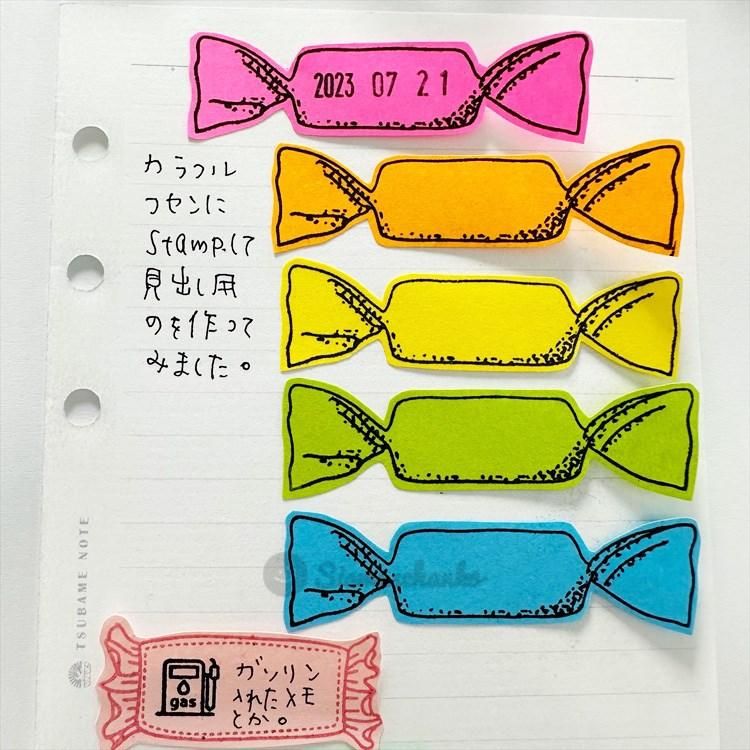 2023 07 21
カラフル
フセンに
Stampして
見出し用
のを作って
みました。
TSUBAME NOTE
gas
ガソリン
入れたメモ
とか。